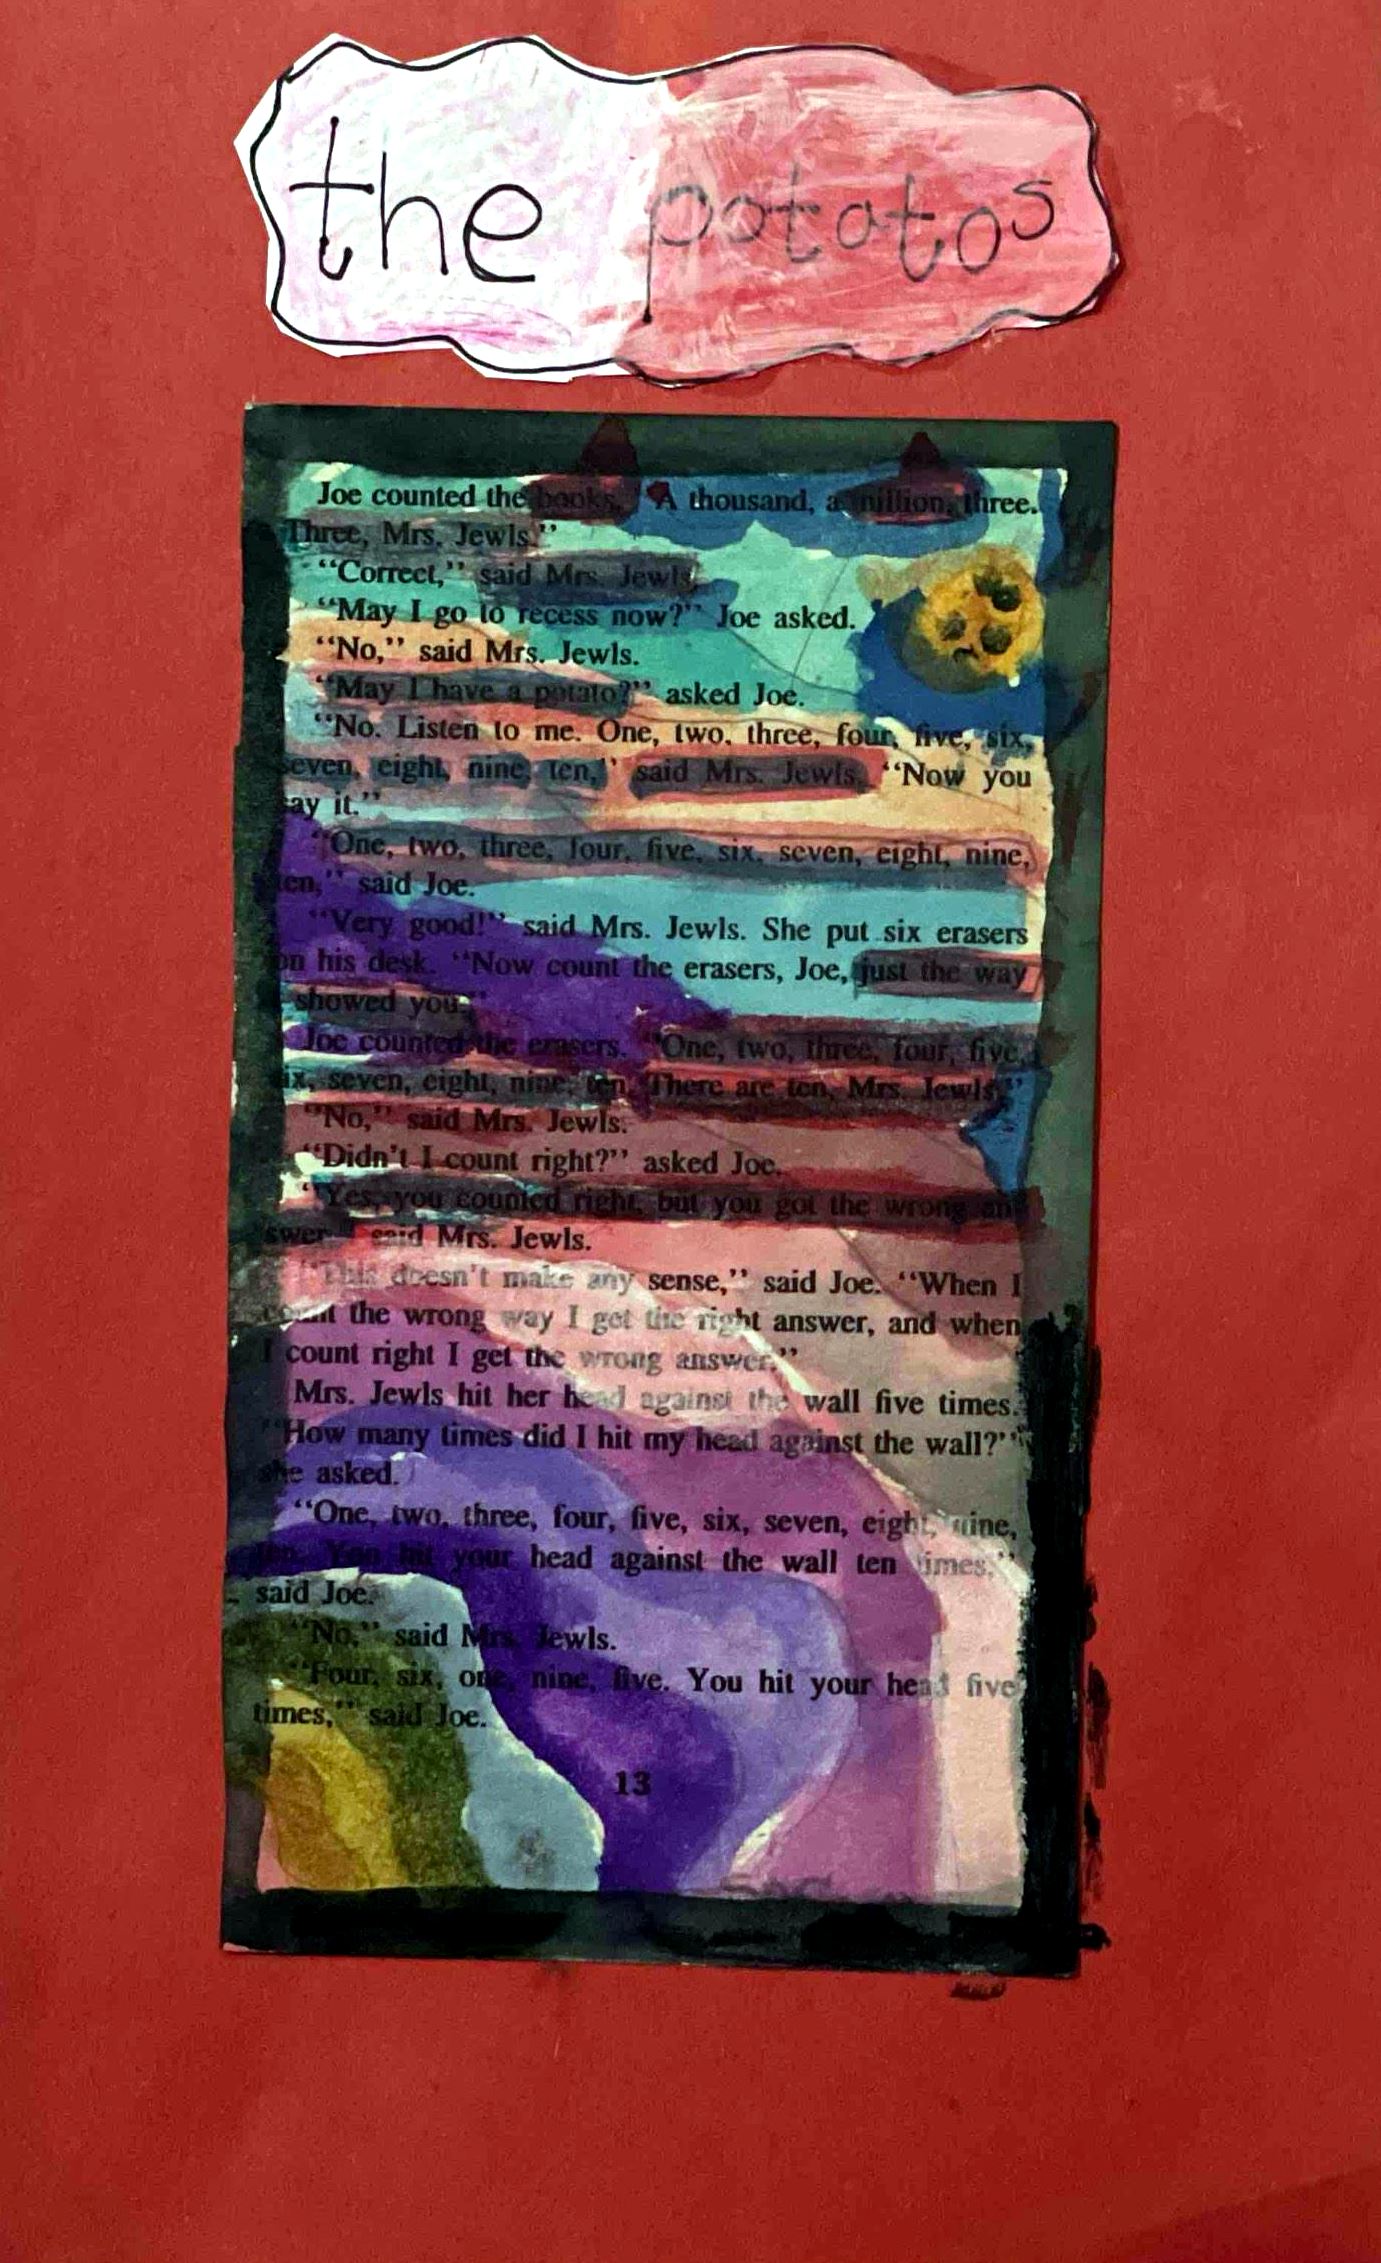 the potatos
Joe counted the books. "A thousand, a million, three.
Three, Mrs. Jewls."
"Correct," said Mrs. Jewls.
"May I go to recess now?" Joe asked.
"No," said Mrs. Jewls.
"May I have a potato?" asked Joe.
"No. Listen to me. One, two, three, four, five, six,
seven, eight, nine, ten," said Mrs. Jewls. "Now you
say it."
"One, two, three, four, five, six, seven, eight, nine,
ten," said Joe.
"Very good!" said Mrs. Jewls. She put six erasers
on his desk. "Now count the erasers, Joe, just the way
showed you."
Joe counted the erasers. "One, two, three, four, five,
six, seven, eight, nine, ten. There are ten, Mrs. Jewls."
"No," said Mrs. Jewls.
"Didn't I count right?" asked Joe.
"Yes, you counted right, but you got the wrong an-
swer," said Mrs. Jewls.
"This doesn't make any sense," said Joe. "When I
count the wrong way I get the right answer, and when
I count right I get the wrong answer."
Mrs. Jewls hit her head against the wall five times.
"How many times did I hit my head against the wall?"
she asked.
"One, two, three, four, five, six, seven, eight, nine,
ten. You hit your head against the wall ten times,"
said Joe.
"No," said Mrs. Jewls.
"Four, six, one, nine, five. You hit your head five
times," said Joe.
13